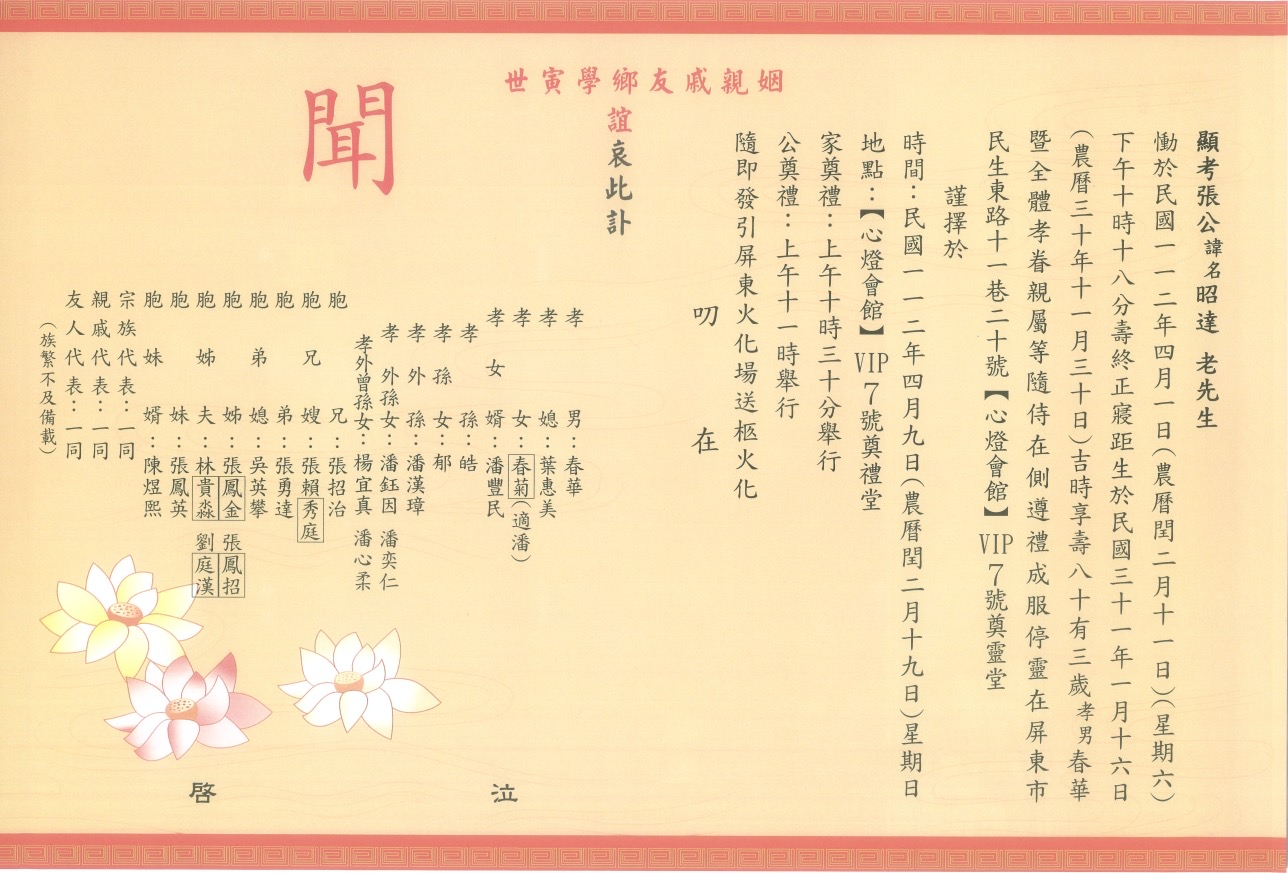 顯考張公諱名昭達 老先生
慟於民國一一二年四月一日(農曆閏二月十一日)(星期六)
下午十時十八分壽終正寢距生於民國三十一年一月十六日
(農曆三十年十一月三十日)吉時享壽八十有三歲孝男春華
暨全體孝眷親屬等隨侍在側遵禮成服停靈在屏東市
民生東路十一巷二十號【心燈會館】VIP7號奠靈堂
謹擇於
時間：民國一一二年四月九日(農曆閏二月十九日)星期日
地點：【心燈會館】VIP7號奠禮堂
家奠禮：上午十時三十分舉行
公奠禮：上午十一時舉行
隨即發引屏東火化場送柩火化
叨在
姻親戚友鄉學寅世
誼哀此訃
聞
孝男：春華
孝媳：葉惠美
孝女：春菊(適潘)
孝女婿：潘豐民
孝孫：皓
孝孫女：郁
孝外孫：潘漢璋
孝外孫女：潘鈺因 潘奕仁
孝外曾孫女：楊宜真 潘心柔
胞兄：張招治
胞兄嫂：張賴秀庭
胞弟：張勇達
胞弟媳：吳英攀
胞姊：張鳳金 張鳳招
胞姊夫：林貴淼 劉庭漢
胞妹：張鳳英
胞妹婿：陳煜熙
宗族代表：一同
親戚代表：一同
友人代表：一同
(族繁不及備載)
泣啓